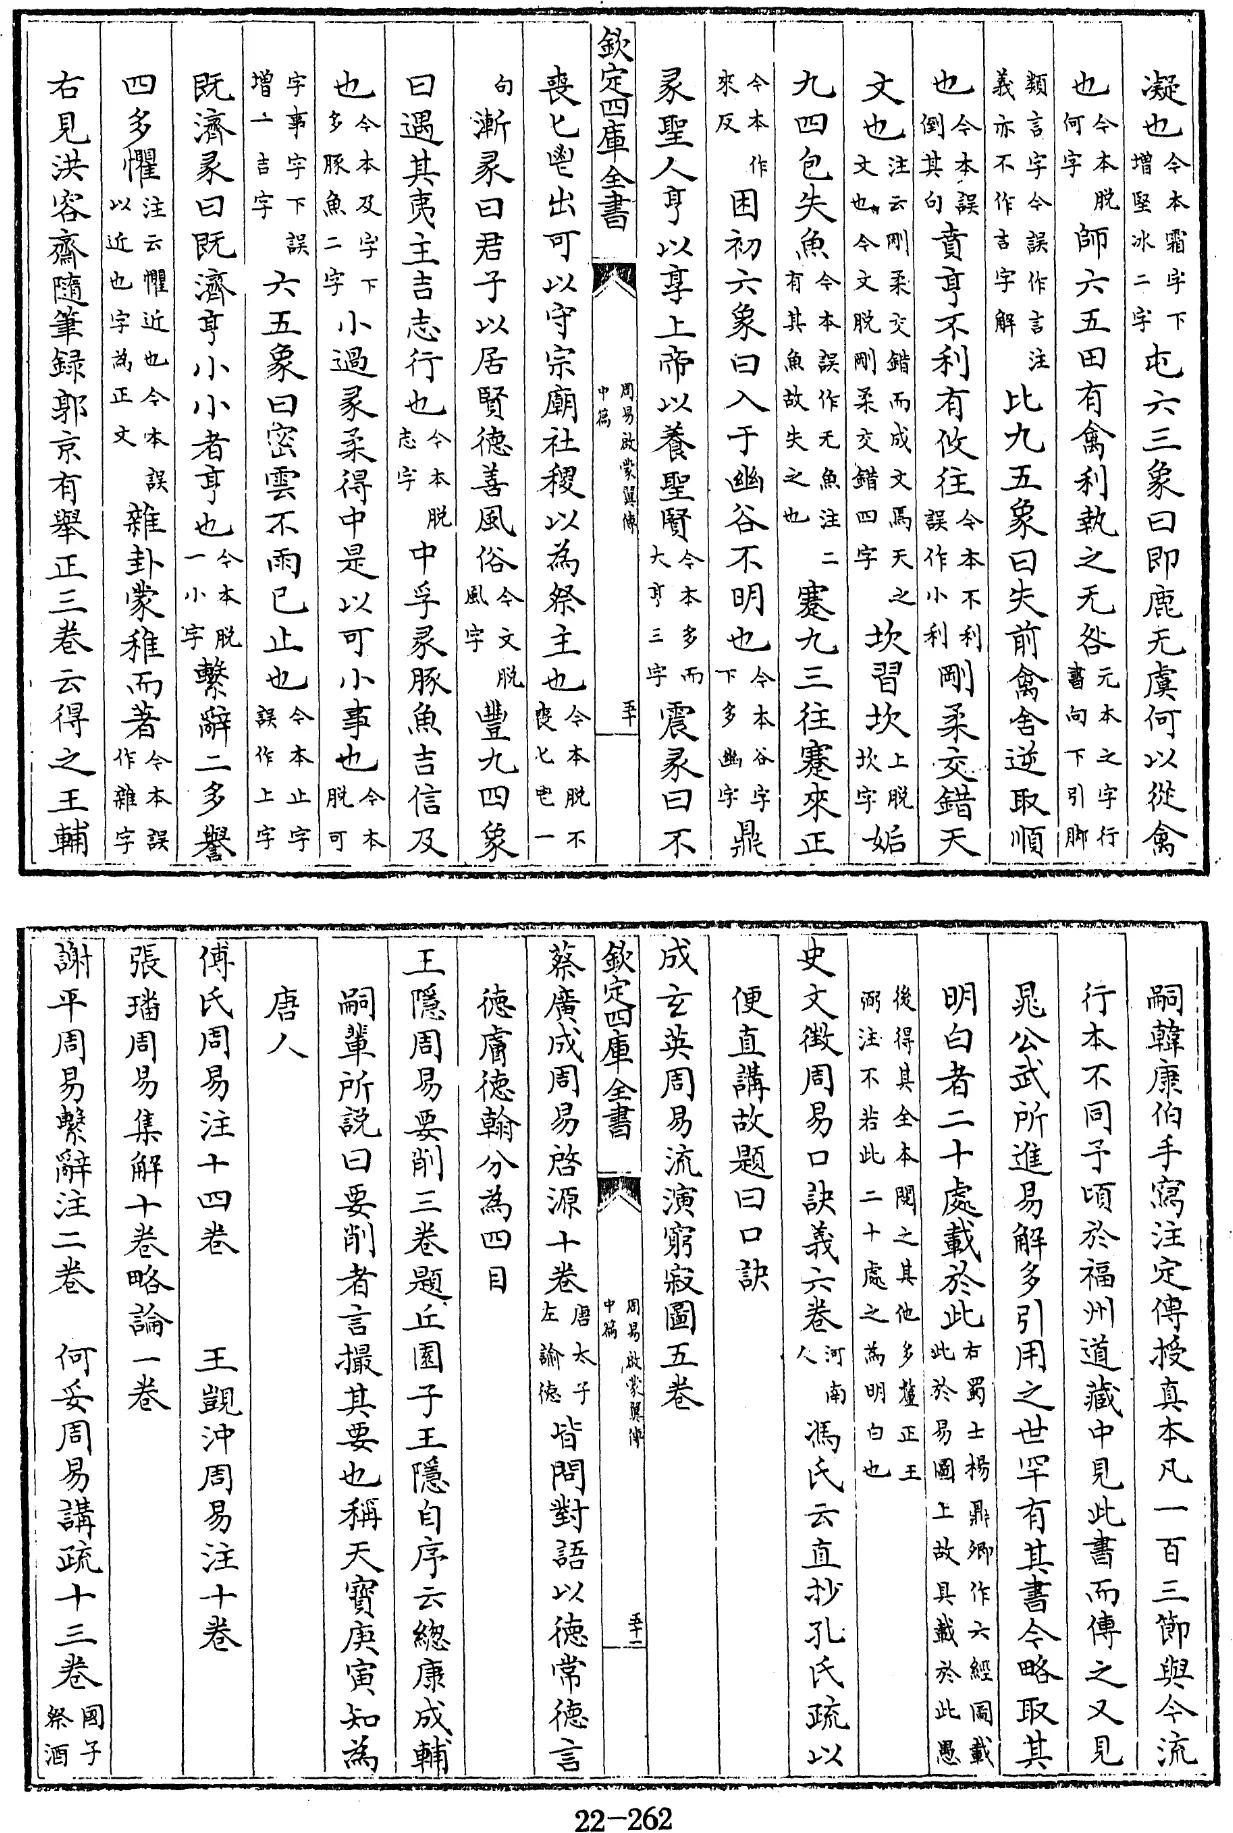 凝也今本霜字下增堅冰二字屯六三象曰即鹿无虞何以從禽
也今本脫何字師六五田有禽利執之无咎元本之字行書向下引脚
類言字今誤作言注義亦不作言字解比九五象曰失前禽舍逆取順
也今本誤倒其句賁亨不利有攸往今本不利誤作小利剛柔交錯天
文也注云剛柔交錯而成文焉天之文也今文脫剛柔交錯四字坎習坎上脫坎字姤
九四包失魚今本誤作无魚注二有其魚故失之也蹇九三往蹇來正
今本作來反困初六象曰入于幽谷不明也今本谷字下多幽字鼎
彖聖人亨以享上帝以養聖賢今本多而大亨三字震彖曰不
欽定四庫全書 周易啟蒙翼傳中篇 五十
喪匕鬯出可以守宗廟社稷以為祭主也今本脫不喪匕鬯一
句漸彖曰君子以居賢德善風俗今文脫風字豐九四象
曰遇其夷主吉志行也今本脫志字中孚彖豚魚吉信及
也今本及字下多豚魚二字小過彖柔得中是以可小事也今本脫可
字事字下誤增一吉字六五象曰密雲不雨已止也今本止字誤作上字
既濟彖曰既濟亨小小者亨也今本脫一小字繫辭二多譽
四多懼注云懼近也今本誤以近也字為正文雜卦蒙稚而著今本誤作雜字
右見洪容齋隨筆録郭京有舉正三卷云得之王輔
嗣韓康伯手寫注定傳授真本凡一百三節與今流
行本不同予頃於福州道藏中見此書而傳之又見
晁公武所進易解多引用之世罕有其書今略取其
明白者二十處載於此右蜀士楊鼎卿作六經圖載此於易圖上故具載於此愚
後得其全本閱之其他多釐正王弼注不若此二十處之為明白也
史文徵周易口訣義六卷河南人馮氏云直抄孔氏疏以
便直講故題曰口訣
成玄英周易流演窮寂圖五卷
欽定四庫全書 周易啟蒙翼傳中篇 五十一
蔡廣成周易啓源十卷唐太子左諭德皆問對語以德常德言
德膚德翰分為四目
王隱周易要削三卷題丘園子王隱自序云總康成輔
嗣輩所說曰要削者言撮其要也稱天寶庚寅知為
唐人
傅氏周易注十四卷 王凱沖周易注十卷
張璠周易集解十卷略論一卷
謝平周易繫辭注二卷 何妥周易講疏十三卷國子祭酒
22-262